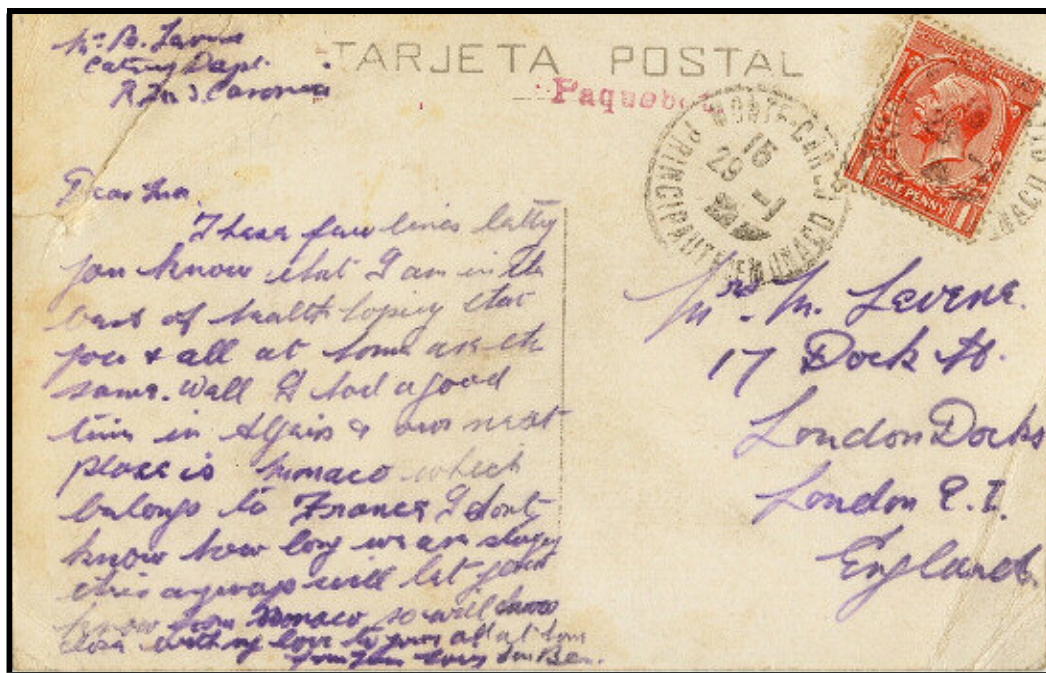 Mr B. Lavene
Catring Dept.
R.M.S. Caronia
TARJETA POSTAL
Paquebot
MONTE-CARLO
PRINCIPAUTE DE MONACO
15
29 - 1
ONE PENNY
1 1
Dear Ma.
These few lines letty
you know that I am in the
best of health hoping that
you & all at home are the
same. Well I had a good
time in Algiers & our next
place is Monaco which
belongs to France I dont
know how long we are staying
there anyway will let you
know from Monaco so will now
close with my love to you all at home
from your loving son Ben.
Mrs. M. Levene.
17 Dock St.
London Docks
London E.I.
England.